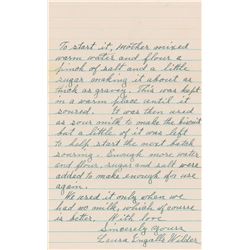 To start it, Mother mixed
warm water and flour a
pinch of salt and a little
sugar making it about as
thick as gravy. This was kept
in a warm place until it
soured. It was then used
as sour milk to make the biscuit
but a little of it was left
to help start the next batch
souring. Enough more water
and flour, sugar and salt were
added to make enough for use
again.
We used it only when we
had no milk, which of course
is better. With love
Sincerely yours
Laura Ingalls Wilder